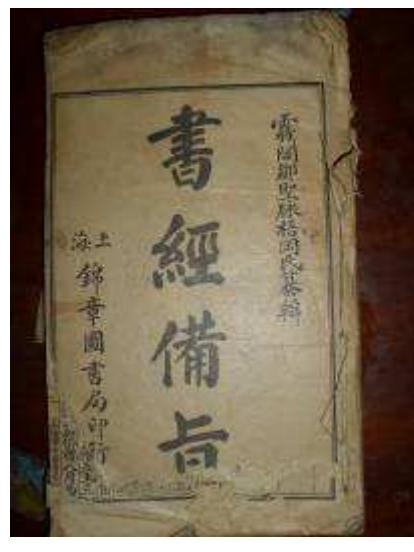 霧閣鄒聖脉梧岡氏纂輯
書經備旨
上海
錦章圖書局印行